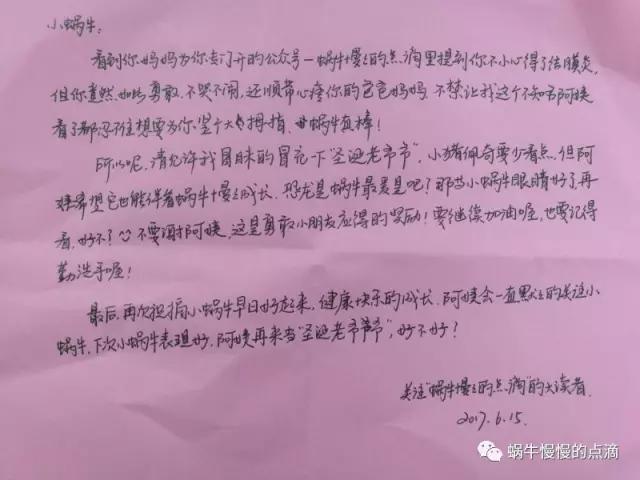 小蜗牛:
看到你妈妈为你专门开的公众号—蜗牛慢慢的点滴里提到你不小心得了结膜炎,
但你竟然如此勇敢,不哭不闹,还顺带心疼你的爸爸妈妈,不禁让我这个不知名阿姨
看了都忍不住想要为你竖个大拇指,蜗牛真棒!
所以呢,请允许我冒昧的冒充一下“圣诞老爷爷”,小猪佩奇要少看点,但阿
姨希望它也能伴着蜗牛慢慢成长,恐龙是蜗牛最爱是吧?那当小蜗牛眼睛好了再
看,好不?不要谢阿姨,这是勇敢小朋友应得的奖励!要继续加油喔,也要记得
勤洗手喔!
最后,再次祝福小蜗牛早日好起来,健康快乐的成长,阿姨会一直默默的关注小
蜗牛,下次小蜗牛表现好,阿姨再来当“圣诞老爷爷”,好不好?
关注“蜗牛慢慢的点滴”的大读者
2017.6.15.
蜗牛慢慢的点滴